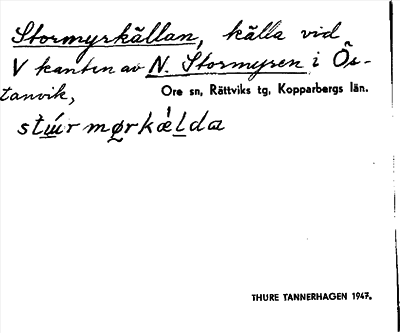 Stormyrkällan, källa vid
V kanten av N. Stormyren i Ös-
tanvik,
Ore sn, Rättviks tg, Kopparbergs län.
THURE TANNERHAGEN 1947.